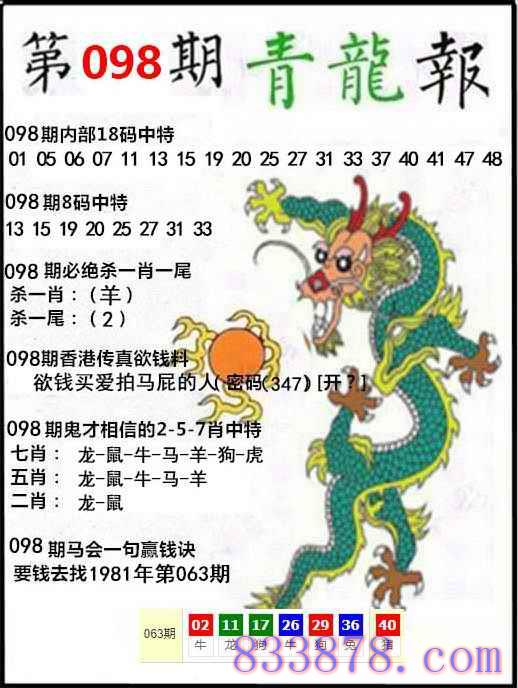 第098期青龍報
098期内部18码中特
01 05 06 07 11 13 15 19 20 25 27 31 33 37 40 41 47 48
098期8码中特
13 15 19 20 25 27 31 33
098期必绝杀一肖一尾
杀一肖：（羊）
杀一尾：（2）
098期香港传真欲钱料
欲钱买爱拍马屁的人(密码(347)[开?]
098期鬼才相信的2-5-7肖中特
七肖： 龙-鼠-牛-马-羊-狗-虎
五肖： 龙-鼠-牛-马-羊
二肖： 龙-鼠
098期马会一句赢钱诀
要钱去找1981年第063期
063期 02 11 17 26 29 36 40
牛 龙 狗 牛 狗 兔 猪
833878.com